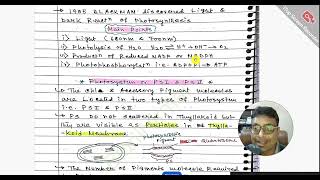 → 1905 BLACKMAN discovered Light &
Dark Rxuen of Photosynthesis
Main Points
i) Light (680nm & 700nm)
ii) Photolysis of H2O H2O ⇌ H+ + OH- → O2
iii) Product of Reduced NADP or NADPH
iv) Photophosphorylation i.e. ADP+Pi → ATP
* Photosystem or PSI & PSII *
→ The Chla & Accessory Pigment molecules
are located in two types of Photosystem
i.e. PSI & PSII
→ PS Do not scattered in Thyllakoid but
they are visible as Particles in Thylla-
-koid Membrane
Photosynthetic
pigment
Quantasome
→ The Number of Pigments Molecule Required